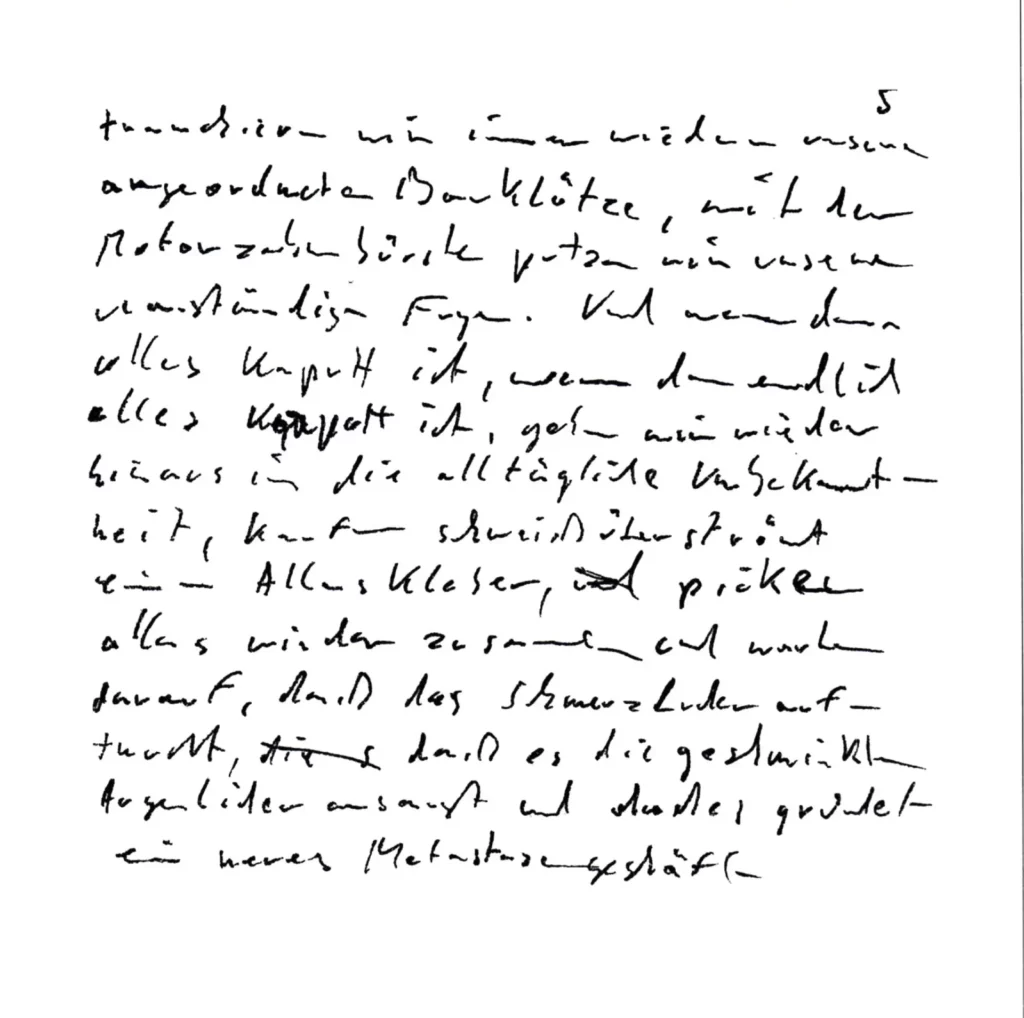 5
tranchieren wir immer wieder unsere
angeordneten Bauklötze, mit der
Motorzahnbürste putzen wir unsere
verständigen Fugen. Und wenn dann
alles kaputt ist, wenn dann endlich
alles kaputt ist, gehn wir wieder
hinaus in die alltägliche Unbekannt-
heit, kaufen schweißüberströmt
einen Alleskleber, und picken
alles wieder zusammen und warten
darauf, daß das Schmerzluder auf-
taucht, daß es die geschminkten
Augenlider ansaugt und gründet
ein neues Metastasengeschäft